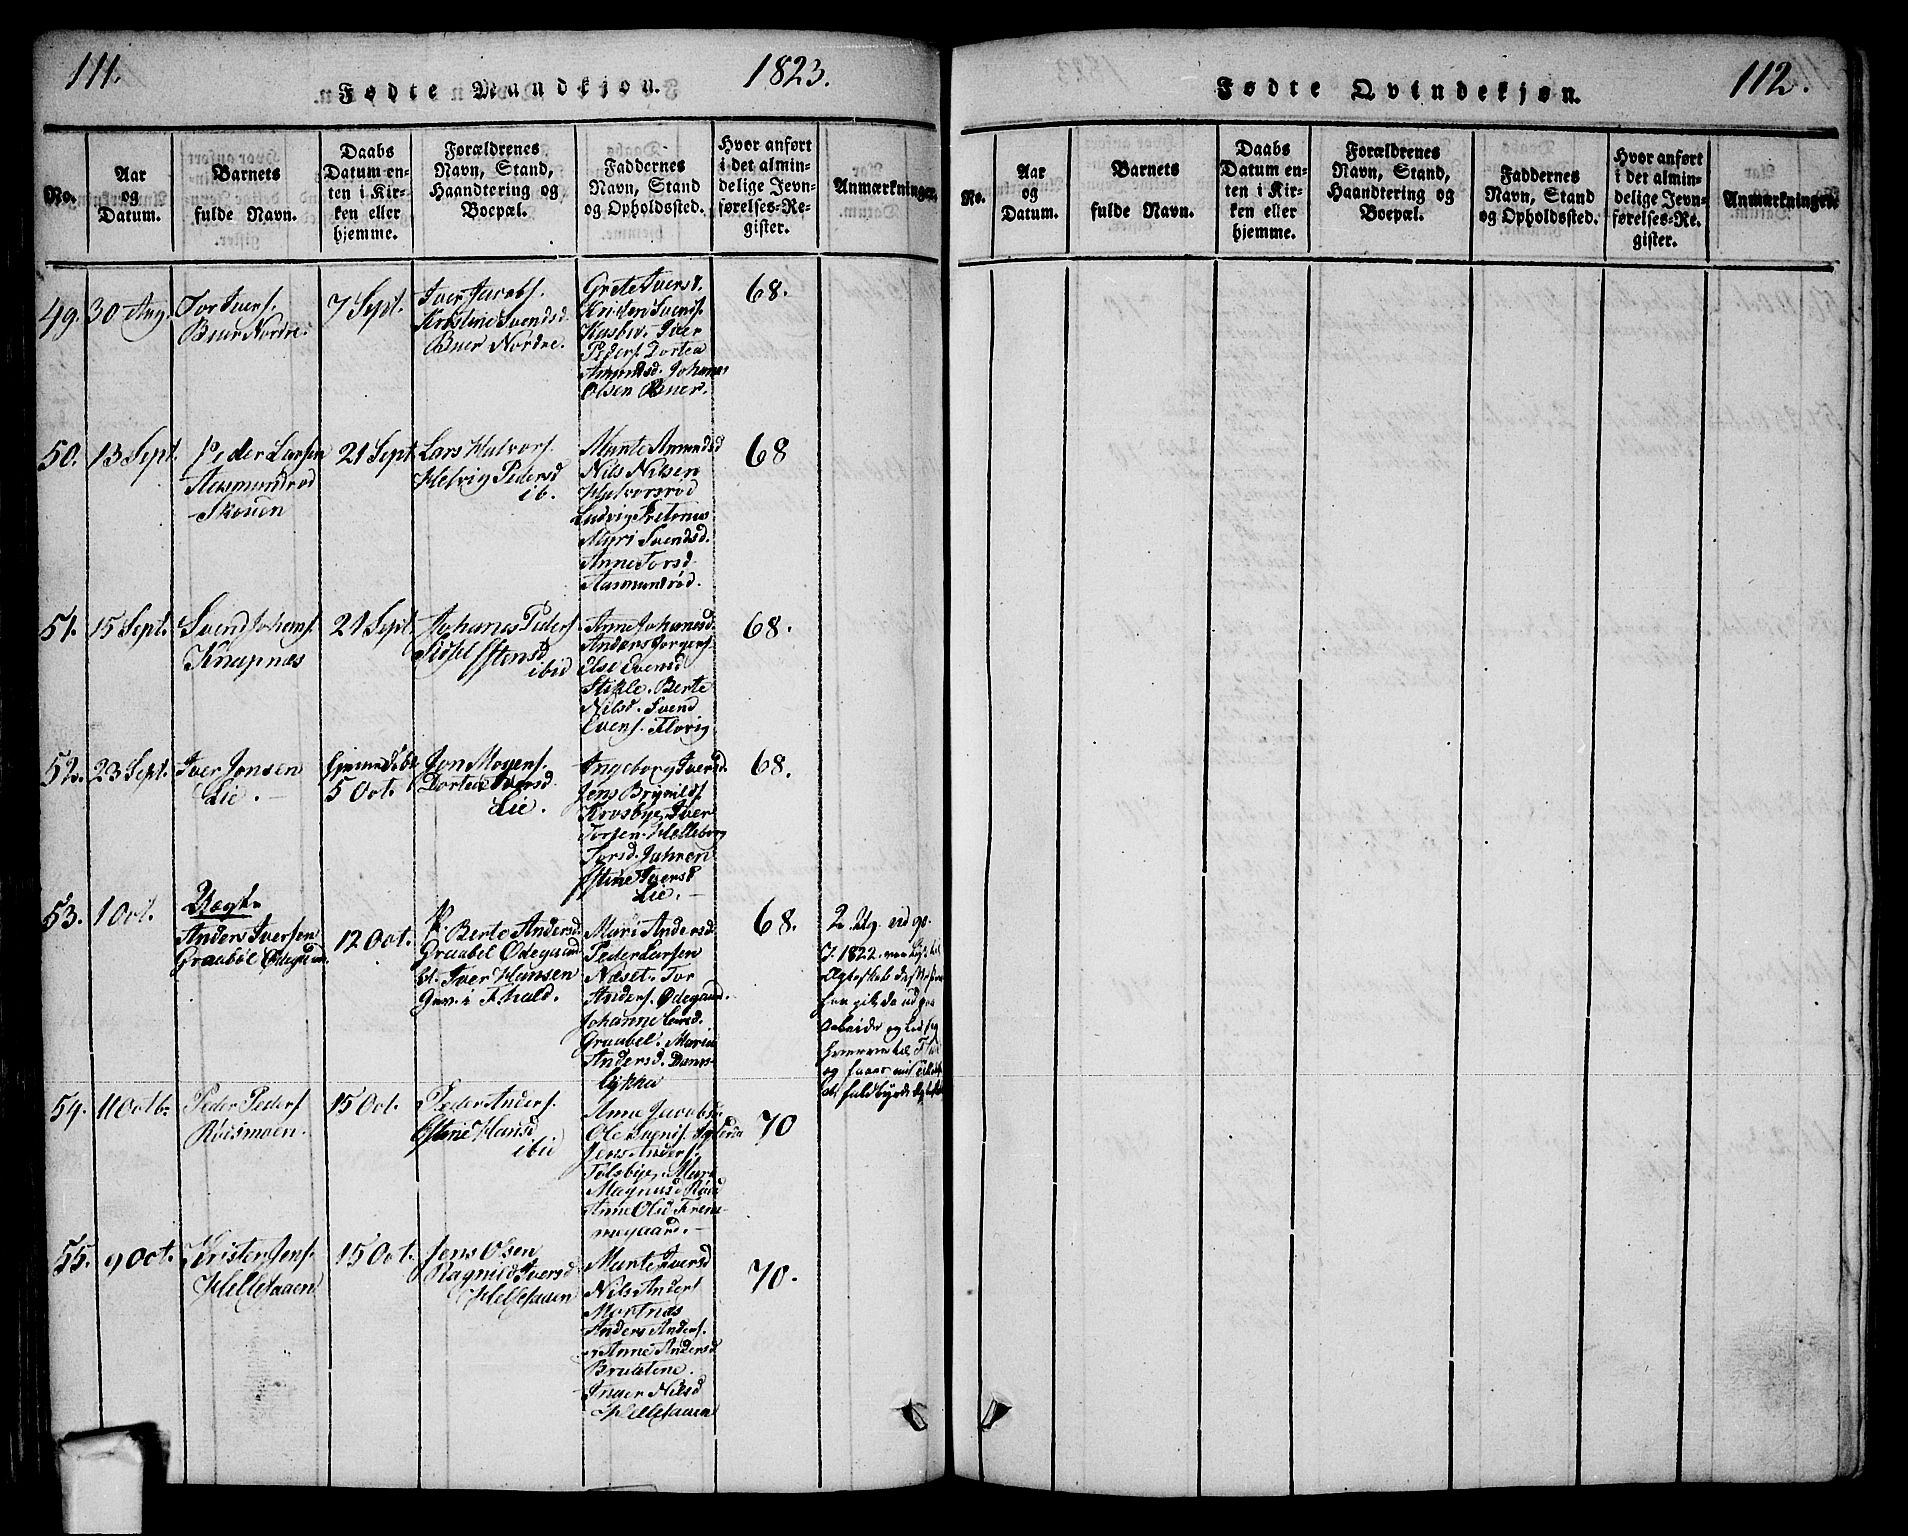 111.
Fødte Mandkjøn.
1823.
No.
Aar og Datum.
Barnets fulde Navn.
Daabs Datum enten i Kirken eller hjemme.
Forældrenes Navn, Stand, Haandtering og Boepæl.
Faddernes Navn, Stand og Opholdssted.
Hvor anført i det almindelige Jevnførelses-Register.
Anmærkninger.
49.
30 Aug.
Tor Ivers.
Buer Nordre.
7 Sept.
Iver Jacobs.
Kristine Svendsd
Buer Nordre.
Grete Iversd.
Kristen Svens.
Iver
Peders. Dortea
Amundsd. Johanes
Olsen Buer.
68.
50.
13 Sept.
Peder Larsen
Aasmundrød
Skouen
21 Sept.
Lars Halvors.
Helvig Pedersd
ib.
Marte Amundsd
Nils Nilsen
Halvorsrød
Ludvig
Mari Svendsd.
Anne Torsd.
Aasmundrød.
68
51.
15 Sept.
Svend Johans.
Knapnæs
21 Sept.
Johanes Peders.
Sidsel Estensd
ibid
Anne Johanesd.
Anders Jorgens.
Else Svensd
Stikle. Berte
Nilsd. Svend
Evens. Florig
68.
52.
23 Sept.
Iver Jonsen
Lie.
5 Oct.
Jon Mogens.
Dortea Iversd.
Lie.
Ingeborg Iversd.
Jens Brynilds.
Krosbye, Iver
Torsen. Helleborg
Torsd. Jahren
Estine Iversd
Lie.
68.
53.
1 Oct.
Uægt.
Anders Iversen
Graabøl Ødegaard.
12 Oct.
P. Berte Andersd.
Graabøl Ødegaard
bf. Iver Hansen
Grn. i Fhald.
Mari Andersd
Peder Larsen
Næset. Tor
Anders. Ødegaard.
Johanne Larsd.
Graabøl. Maria
Andersd. Dams-
lykka
68.
54.
11 Octb.
Peder Peders.
Røismoen.
15 Oct.
Peder Anders.
Estine Hansd
ibid
Anne Jacobsd.
Ole Svens.
Jens Anders.
Tolsbye, Mari
Magnusd
Anne Olsd Frene-
megaard.
70
55.
9 Oct.
Krister Jens.
Hellesaaen
15 Oct.
Jens Olsen
Ragnild Iversd
Hellesaaen
Marte Iversd
Nils Anders
Mortnæs
Anders Anders.
Anne Andersd
Braatene.
Inger Nilsd
Hellesaaen
70.
112.
Fødte Qvindekjøn.
No.
Aar og Datum.
Barnets fulde Navn.
Daabs Datum enten i Kirken eller hjemme.
Forældrenes Navn, Stand, Haandtering og Boepæl.
Faddernes Navn, Stand og Opholdssted.
Hvor anført i det almindelige Jevnførelses-Register.
Anmærkninger.